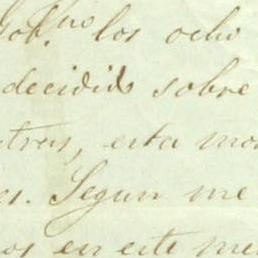 Gob.no los ocho
decidido sobre
otras, esta mo
es. Segun me
os en este me